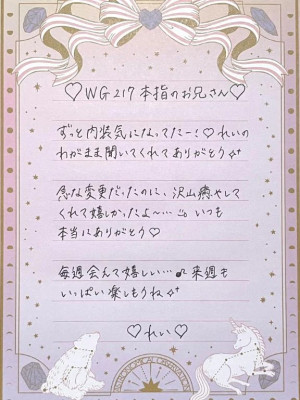 ♡WG217本指のお兄さん♡
ずっと内装気になってたー!♡れいの
わがまま聞いてくれてありがとう
急な変更だったのに、沢山癒やして
くれて嬉しかったよ〜…いつも
本当にありがとう♡
毎週会えて嬉しい…♪来週も
いっぱい楽しもうね
♡れい♡